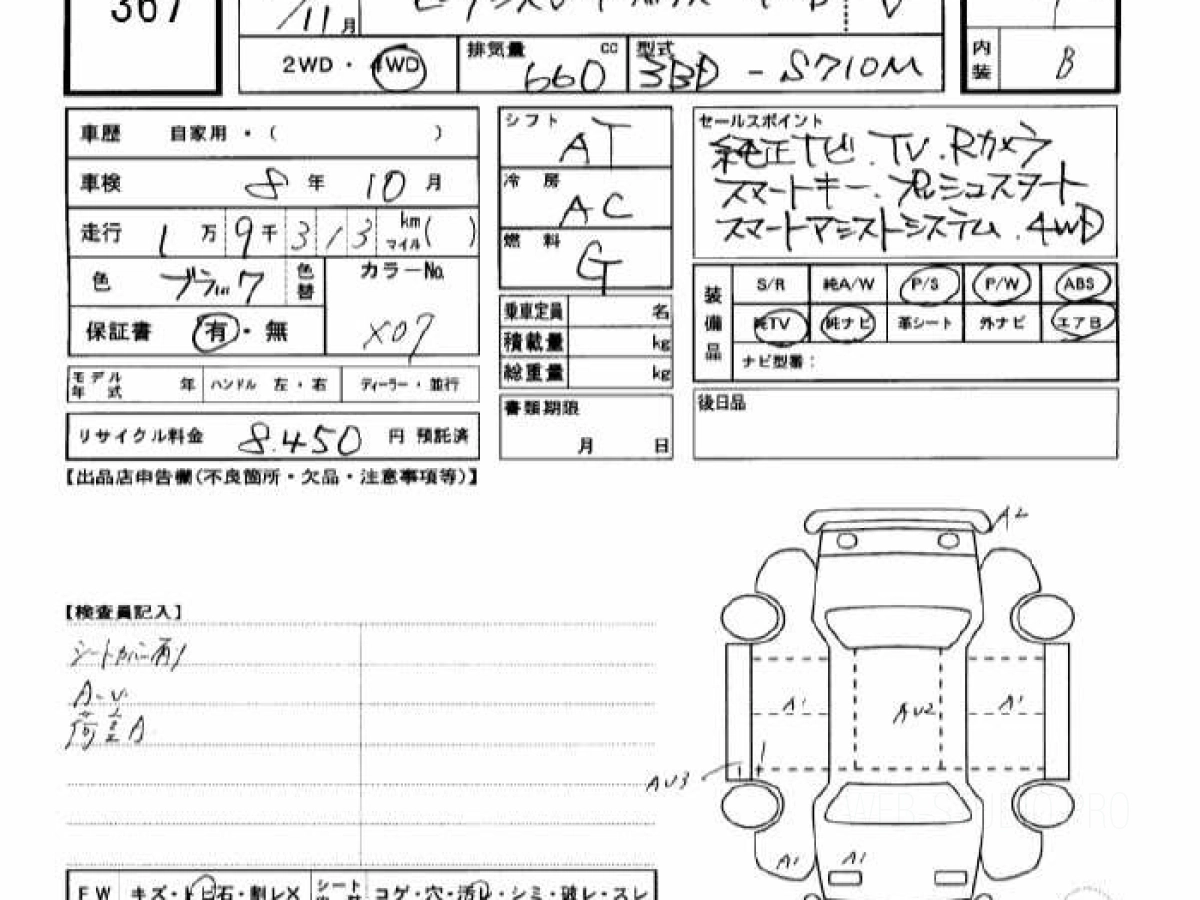 367
11月
2WD・4WD
排気量 cc 660
型式 3BD - S710M
内装 B
車歴 自家用・( )
車検 8年 10月
走行 1万9千313 km マイル( )
色 ブラック 色替
カラーNo. X07
保証書 有・無
モデル年式 年 ハンドル 左・右 ディーラー・並行
リサイクル料金 8.450 円 預託済
シフト AT
冷房 AC
燃料 G
乗車定員 名
積載量 kg
総重量 kg
書類期限
月 日
セールスポイント
純正ナビ.TV.Rカメラ
スマートキー.プッシュスタート
スマートアシストシステム.4WD
装備品
S/R 純A/W P/S P/W ABS
純TV 純ナビ 革シート 外ナビ エアB
ナビ型番:
後日品
【出品店申告欄(不良箇所・欠品・注意事項等)】
【検査員記入】
シートカバー有り
A・U
荷室A
A2
A1 AU2 A1
AU3
A1 A1
FW キズ・トビ石・割レX シート コゲ・穴・汚レ・シミ・破レ・スレ